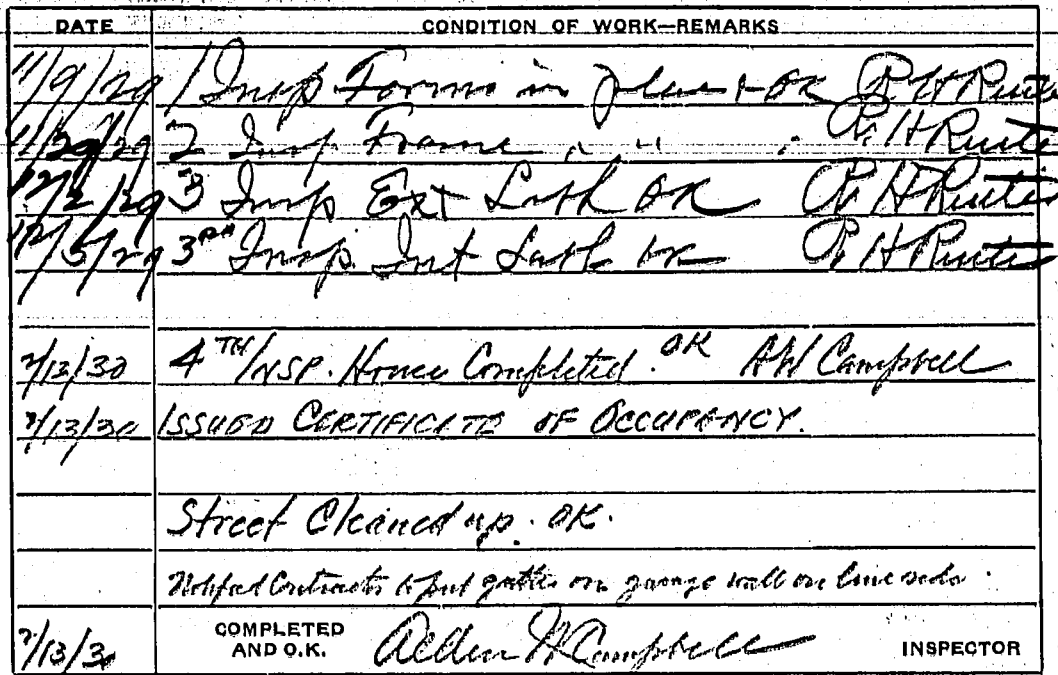 DATE CONDITION OF WORK—REMARKS
11/9/29 1 Insp Forms in place & OK R H Ruiter
11/29/29 2 Insp. Frame " " " R. H Ruiter
12/2/29 3 Insp Ext Lath OK R H Ruiter
12/5/29 3RD Insp. Int Lath OK R H Ruiter
2/13/30 4TH INSP. House Completed. OK AW Campbell
2/13/30 ISSUED CERTIFICATE OF OCCUPANCY.
Street Cleaned up. OK.
Notified Contractor to put gutter on garage wall on line side.
2/13/30 COMPLETED AND O.K. Alden W Campbell INSPECTOR